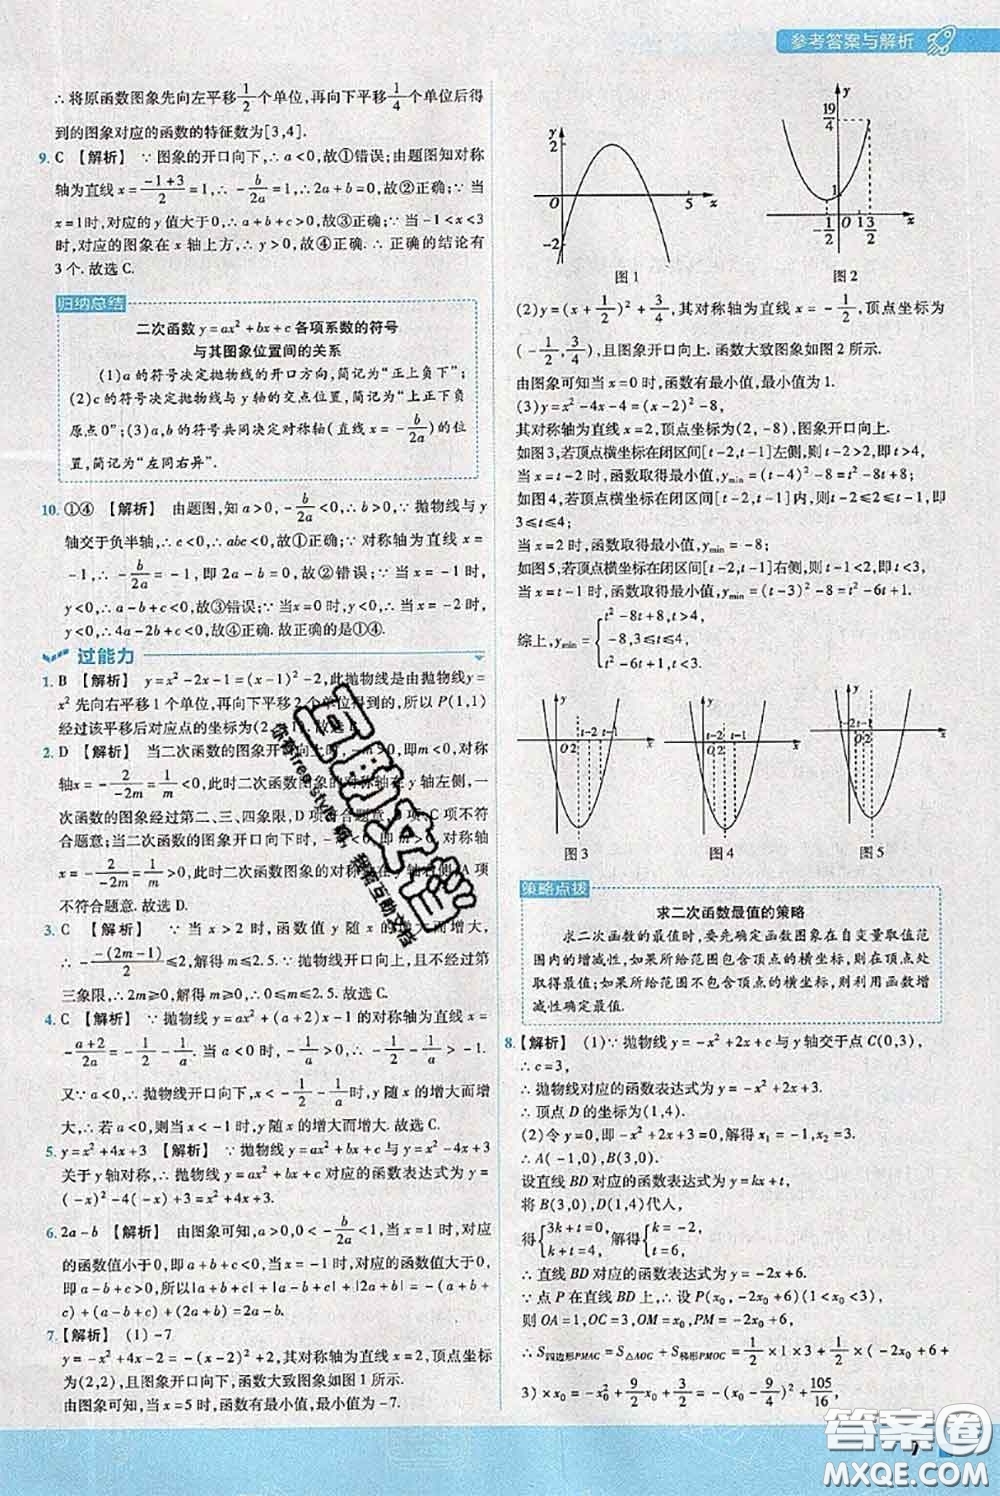 参考答案与解析
∴将原函数图象先向左平移1/2个单位,再向下平移1/4个单位后得
到的图象对应的函数的特征数为[3,4].
9. C 【解析】 ∵图象的开口向下,∴a<0,故①错误;由题图知对称
轴为直线x=(-1+3)/2=1,∴-b/2a=1,∴2a+b=0,故②正确;∵当
x=1时,对应的y值大于0,∴a+b+c>0,故③正确;∵当-1<x<3
时,对应的图象在x轴上方,∴y>0,故④正确.∴正确的结论有
3个.故选C.
归纳总结
二次函数y=ax²+bx+c各项系数的符号
与其图象位置间的关系
(1)a的符号决定抛物线的开口方向,简记为“正上负下”;
(2)c的符号决定抛物线与y轴的交点位置,简记为“上正下负
原点0”;(3)a,b的符号共同决定对称轴(直线x=-b/2a)的位
置,简记为“左同右异”.
10. ①④ 【解析】 由题图,知a>0,-b/2a<0,∴b>0,∵抛物线与y
轴交于负半轴,∴c<0,∴abc<0,故①正确;∵对称轴为直线x=
-1,∴-b/2a=-1,即2a-b=0,故②错误;∵当x=-1时,
y<0,∴a-b+c<0,故③错误;∵当x=0时,y<0,∴当x=-2时,
y<0,∴4a-2b+c<0,故④正确.故正确的是①④.
过能力
1. B 【解析】 y=x²-2x-1=(x-1)²-2,此抛物线是由抛物线y=
x²先向右平移1个单位,再向下平移2个单位得到的,所以P(1,1)
经过该平移后对应点的坐标为(2,-1).故选B.
2. D 【解析】 当二次函数的图象开口向上时,-m>0,即m<0,对称
轴x=-2/(-2m)=1/m<0,此时二次函数图象的对称轴在y轴左侧,一
次函数的图象经过第二、三、四象限,D项符合题意,C项不符
合题意;当二次函数的图象开口向下时,-m<0,即m>0,对称轴
x=-2/(-2m)=1/m>0,此时二次函数图象的对称轴在y轴右侧,A项
不符合题意.故选D.
3. C 【解析】 ∵当x>2时,函数值y随x的增大而增大,
∴-(-(2m-1))/2≤2,解得m≤2.5.∵抛物线开口向上,且不经过第
三象限,∴2m≥0,解得m≥0,∴0≤m≤2.5.故选C.
4. C 【解析】 ∵抛物线y=ax²+(a+2)x-1的对称轴为直线x=
-(a+2)/2a=-1/2-1/a.当a<0时,-1/a>0,∴-1/2-1/a>-1/2.
又∵a<0,∴抛物线开口向下,∴当x<-1/2-1/a时,y随x的增大而增
大,∴若a<0,则当x<-1时,y随x的增大而增大.故选C.
5. y=x²+4x+3 【解析】 ∵抛物线y=ax²+bx+c与y=x²-4x+3
关于y轴对称,∴抛物线y=ax²+bx+c对应的函数表达式为y=
(-x)²-4(-x)+3=x²+4x+3.
6. 2a-b 【解析】 由图象可知,a>0,0<-b/2a<1,当x=1时,对应
的函数值小于0,即a+b+c<0,当x=-1时,对应的函数值大于0,即
a-b+c>0,所以|a+b+c|+|a-b+c|+|2a+b|=-(a+b+
c)+(a-b+c)+(2a+b)=2a-b.
7. 【解析】 (1)-7
y=-x²+4x-2=-(x-2)²+2,其对称轴为直线x=2,顶点坐标为
(2,2),且图象开口向下,函数大致图象如图1所示.
由图象可知,当x=5时,函数有最小值,最小值为-7.
y
2
O
5
x
-2
图1
y
19/4
1
-1/2
O
1
3/2
x
图2
(2)y=(x+1/2)²+3/4,其对称轴为直线x=-1/2,顶点坐标为
(-1/2,3/4),且图象开口向上.函数大致图象如图2所示.
由图象可知当x=0时,函数有最小值,最小值为1.
(3)y=x²-4x-4=(x-2)²-8,
其对称轴为直线x=2,顶点坐标为(2,-8),图象开口向上.
如图3,若顶点横坐标在闭区间[t-2,t-1]左侧,则t-2>2,即t>4,
当x=t-2时,函数取得最小值,y_min=(t-4)²-8=t²-8t+8;
如图4,若顶点横坐标在闭区间[t-2,t-1]内,则t-2≤2≤t-1,即
3≤t≤4;
当x=2时,函数取得最小值,y_min=-8;
如图5,若顶点横坐标在闭区间[t-2,t-1]右侧,则t-1<2,即t<3,
当x=t-1时,函数取得最小值,y_min=(t-3)²-8=t²-6t+1.
综上,y_min={t²-8t+8,t>4,
-8,3≤t≤4,
t²-6t+1,t<3.
y
t-2 t-1
O 2
x
图3
y
t-2 t-1
O 2
x
图4
y
t-2 t-1
O 2
x
图5
策略点拨
求二次函数最值的策略
求二次函数的最值时,要先确定函数图象在自变量取值范
围内的增减性,如果所给范围包含顶点的横坐标,则在顶点处
取得最值;如果所给范围不包含顶点的横坐标,则利用函数增
减性确定最值.
8. 【解析】 (1)∵抛物线y=-x²+2x+c与y轴交于点C(0,3),
∴c=3,
∴抛物线对应的函数表达式为y=-x²+2x+3.
∴顶点D的坐标为(1,4).
(2)令y=0,即-x²+2x+3=0,解得x₁=-1,x₂=3.
∴A(-1,0),B(3,0).
设直线BD对应的函数表达式为y=kx+t,
将B(3,0),D(1,4)代入,
得{3k+t=0, k+t=4, 解得{k=-2, t=6.
∴直线BD对应的函数表达式为y=-2x+6.
∵点P在直线BD上,∴设P(x₀,-2x₀+6)(1<x₀<3),
则OA=1,OC=3,OM=x₀,PM=-2x₀+6,
∴S四边形PMAC=S△AOC+S梯形PMOC=1/2×1×3+1/2×(-2x₀+6+
3)×x₀=-x₀²+9/2x₀+3/2=-(x₀-9/4)²+105/16,
7
答案圈
MXQE.COM